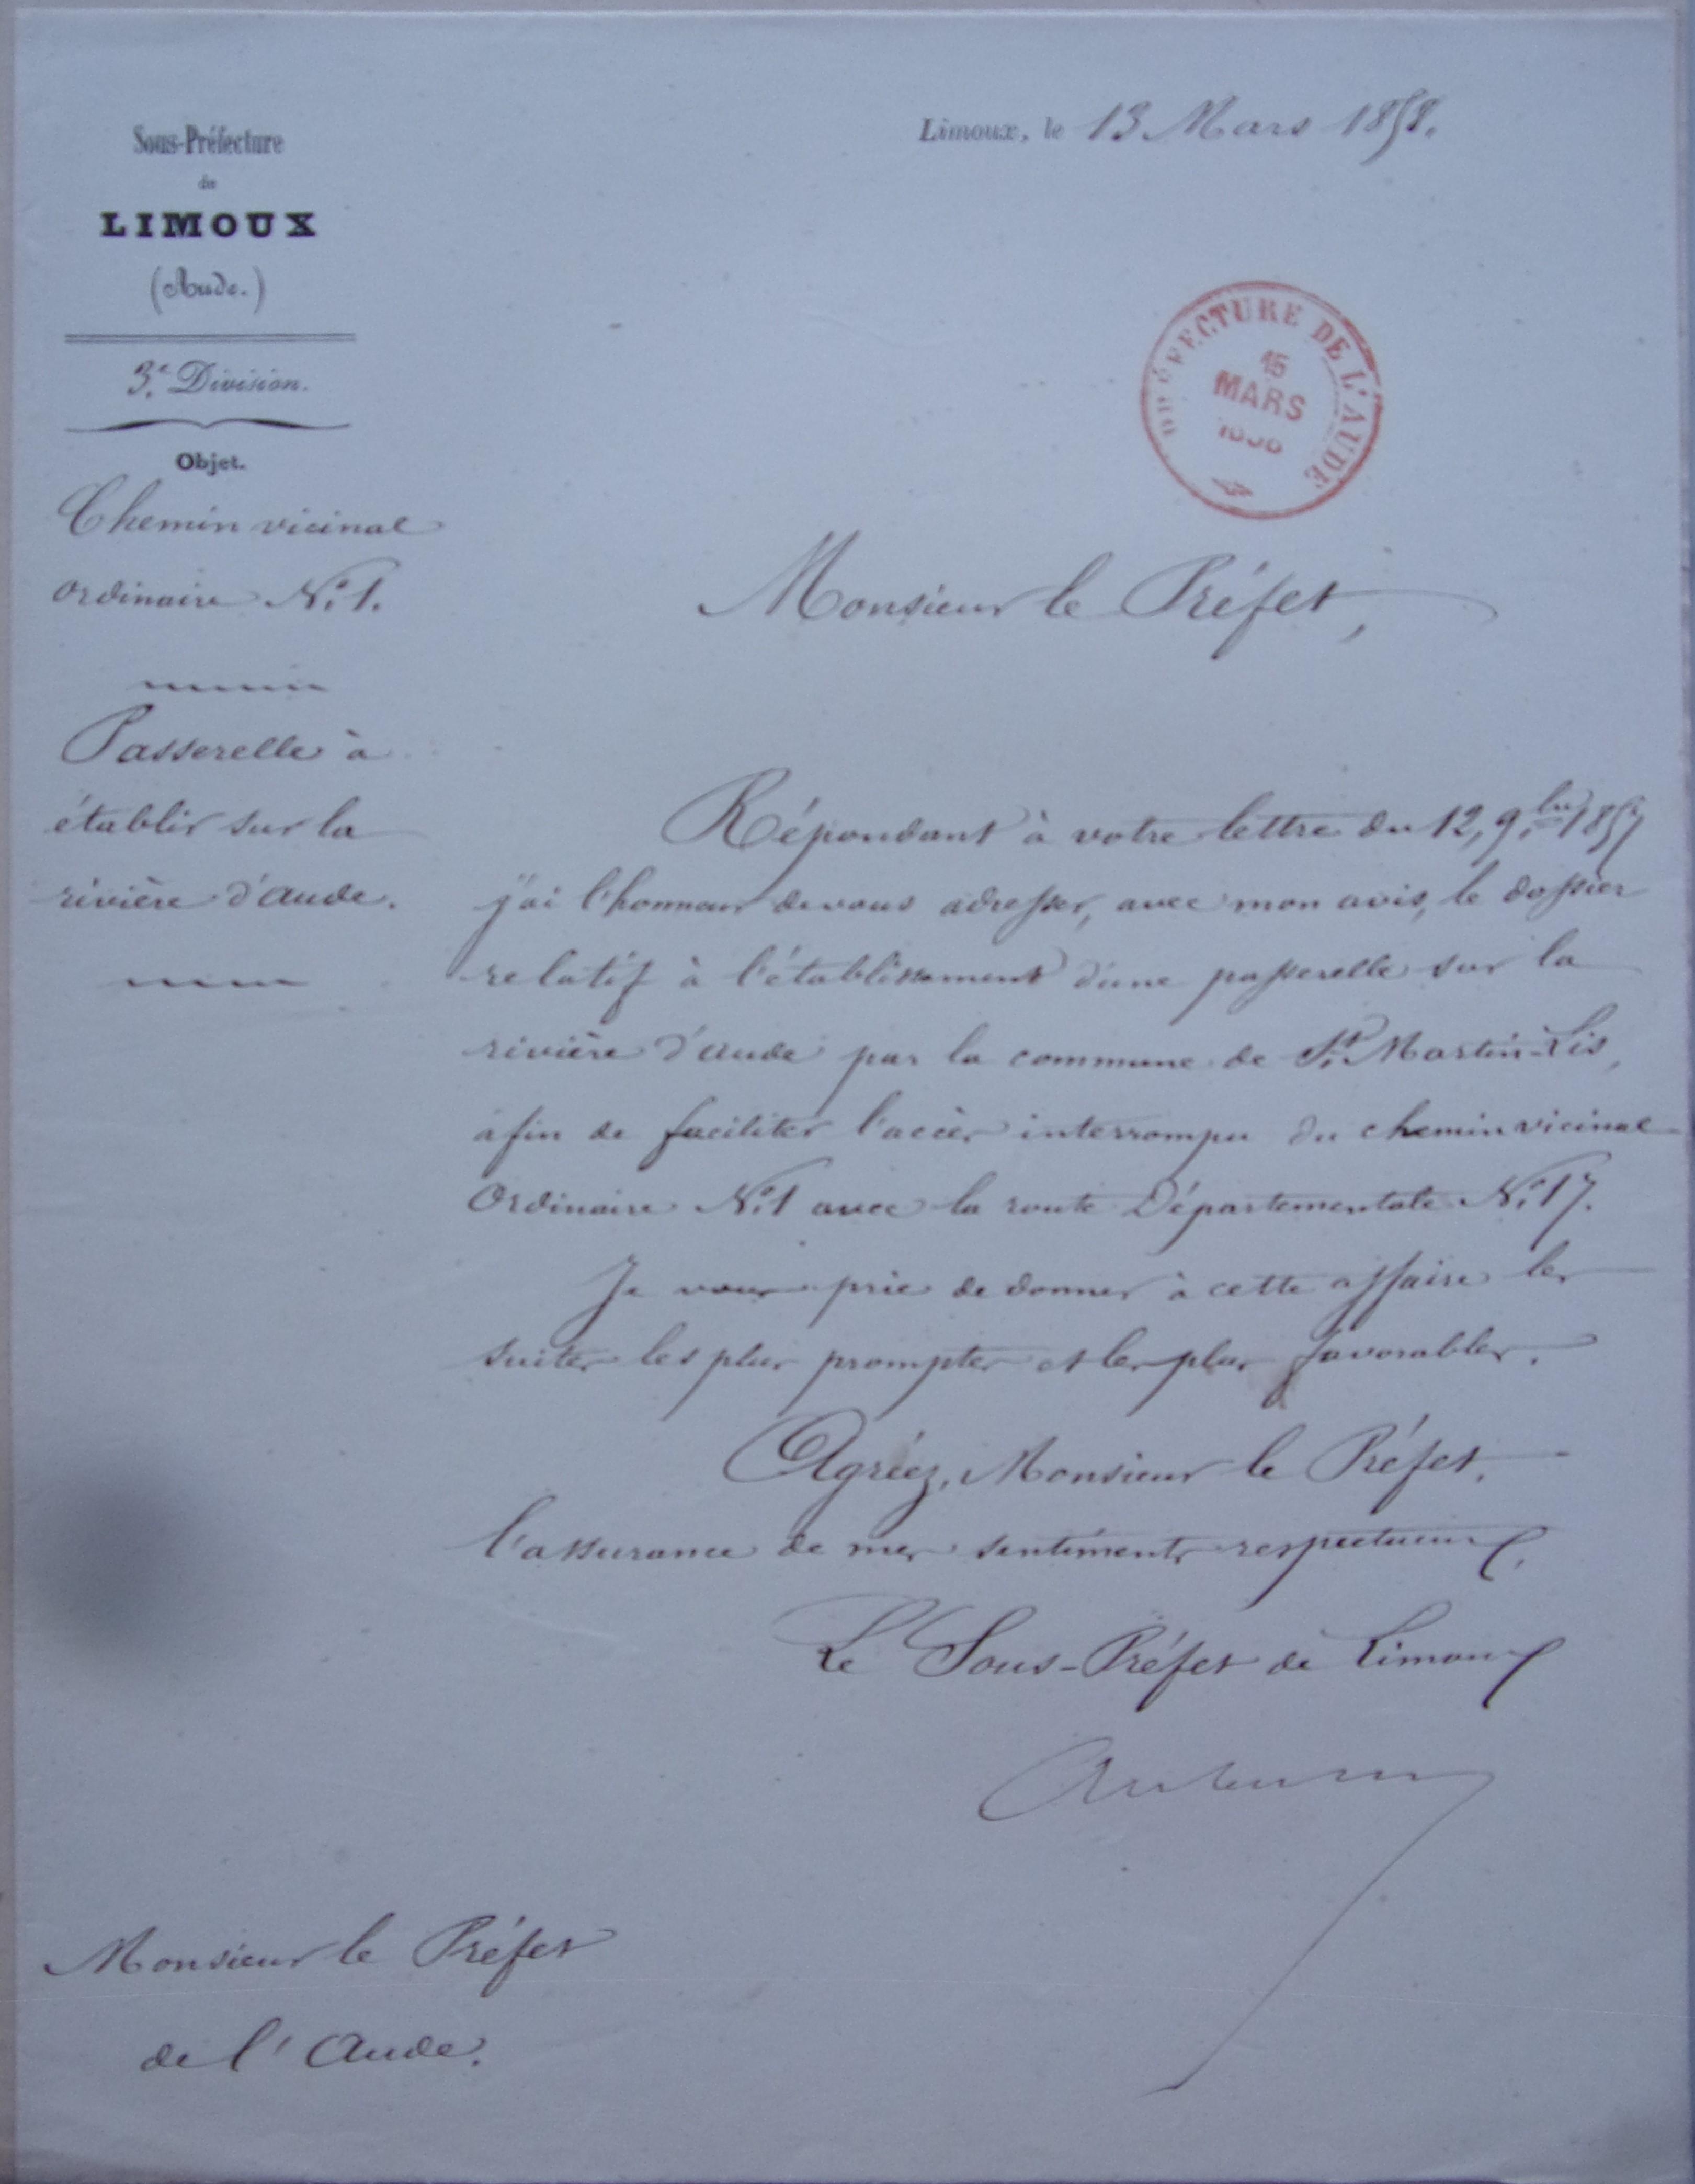 Sous-Préfecture
de
LIMOUX
(Aude.)
3.e Division.
Objet.
Chemin vicinal
Ordinaire N.° 1.
Passerelle à
établir sur la
rivière d'aude.
Limoux, le 13 Mars 1858.
PRÉFECTURE DE L'AUDE
15
MARS
1858
Monsieur le Préfet,
Répondant à votre lettre du 12, 9.bre 1857
j'ai l'honneur de vous adresser, avec mon avis, le dossier
relatif à l'établissement d'une passerelle sur la
rivière d'aude par la commune de St. Martin-Lis,
afin de faciliter l'accès interrompu du chemin vicinal
Ordinaire N.° 1 avec la route Départementale N.° 17.
Je vous prie de donner à cette affaire les
suites les plus promptes et les plus favorables.
Agréez, Monsieur le Préfet,
l'assurance de mes sentiments respectueux.
Le Sous-Préfet de Limoux
Monsieur le Préfet
de l'Aude.